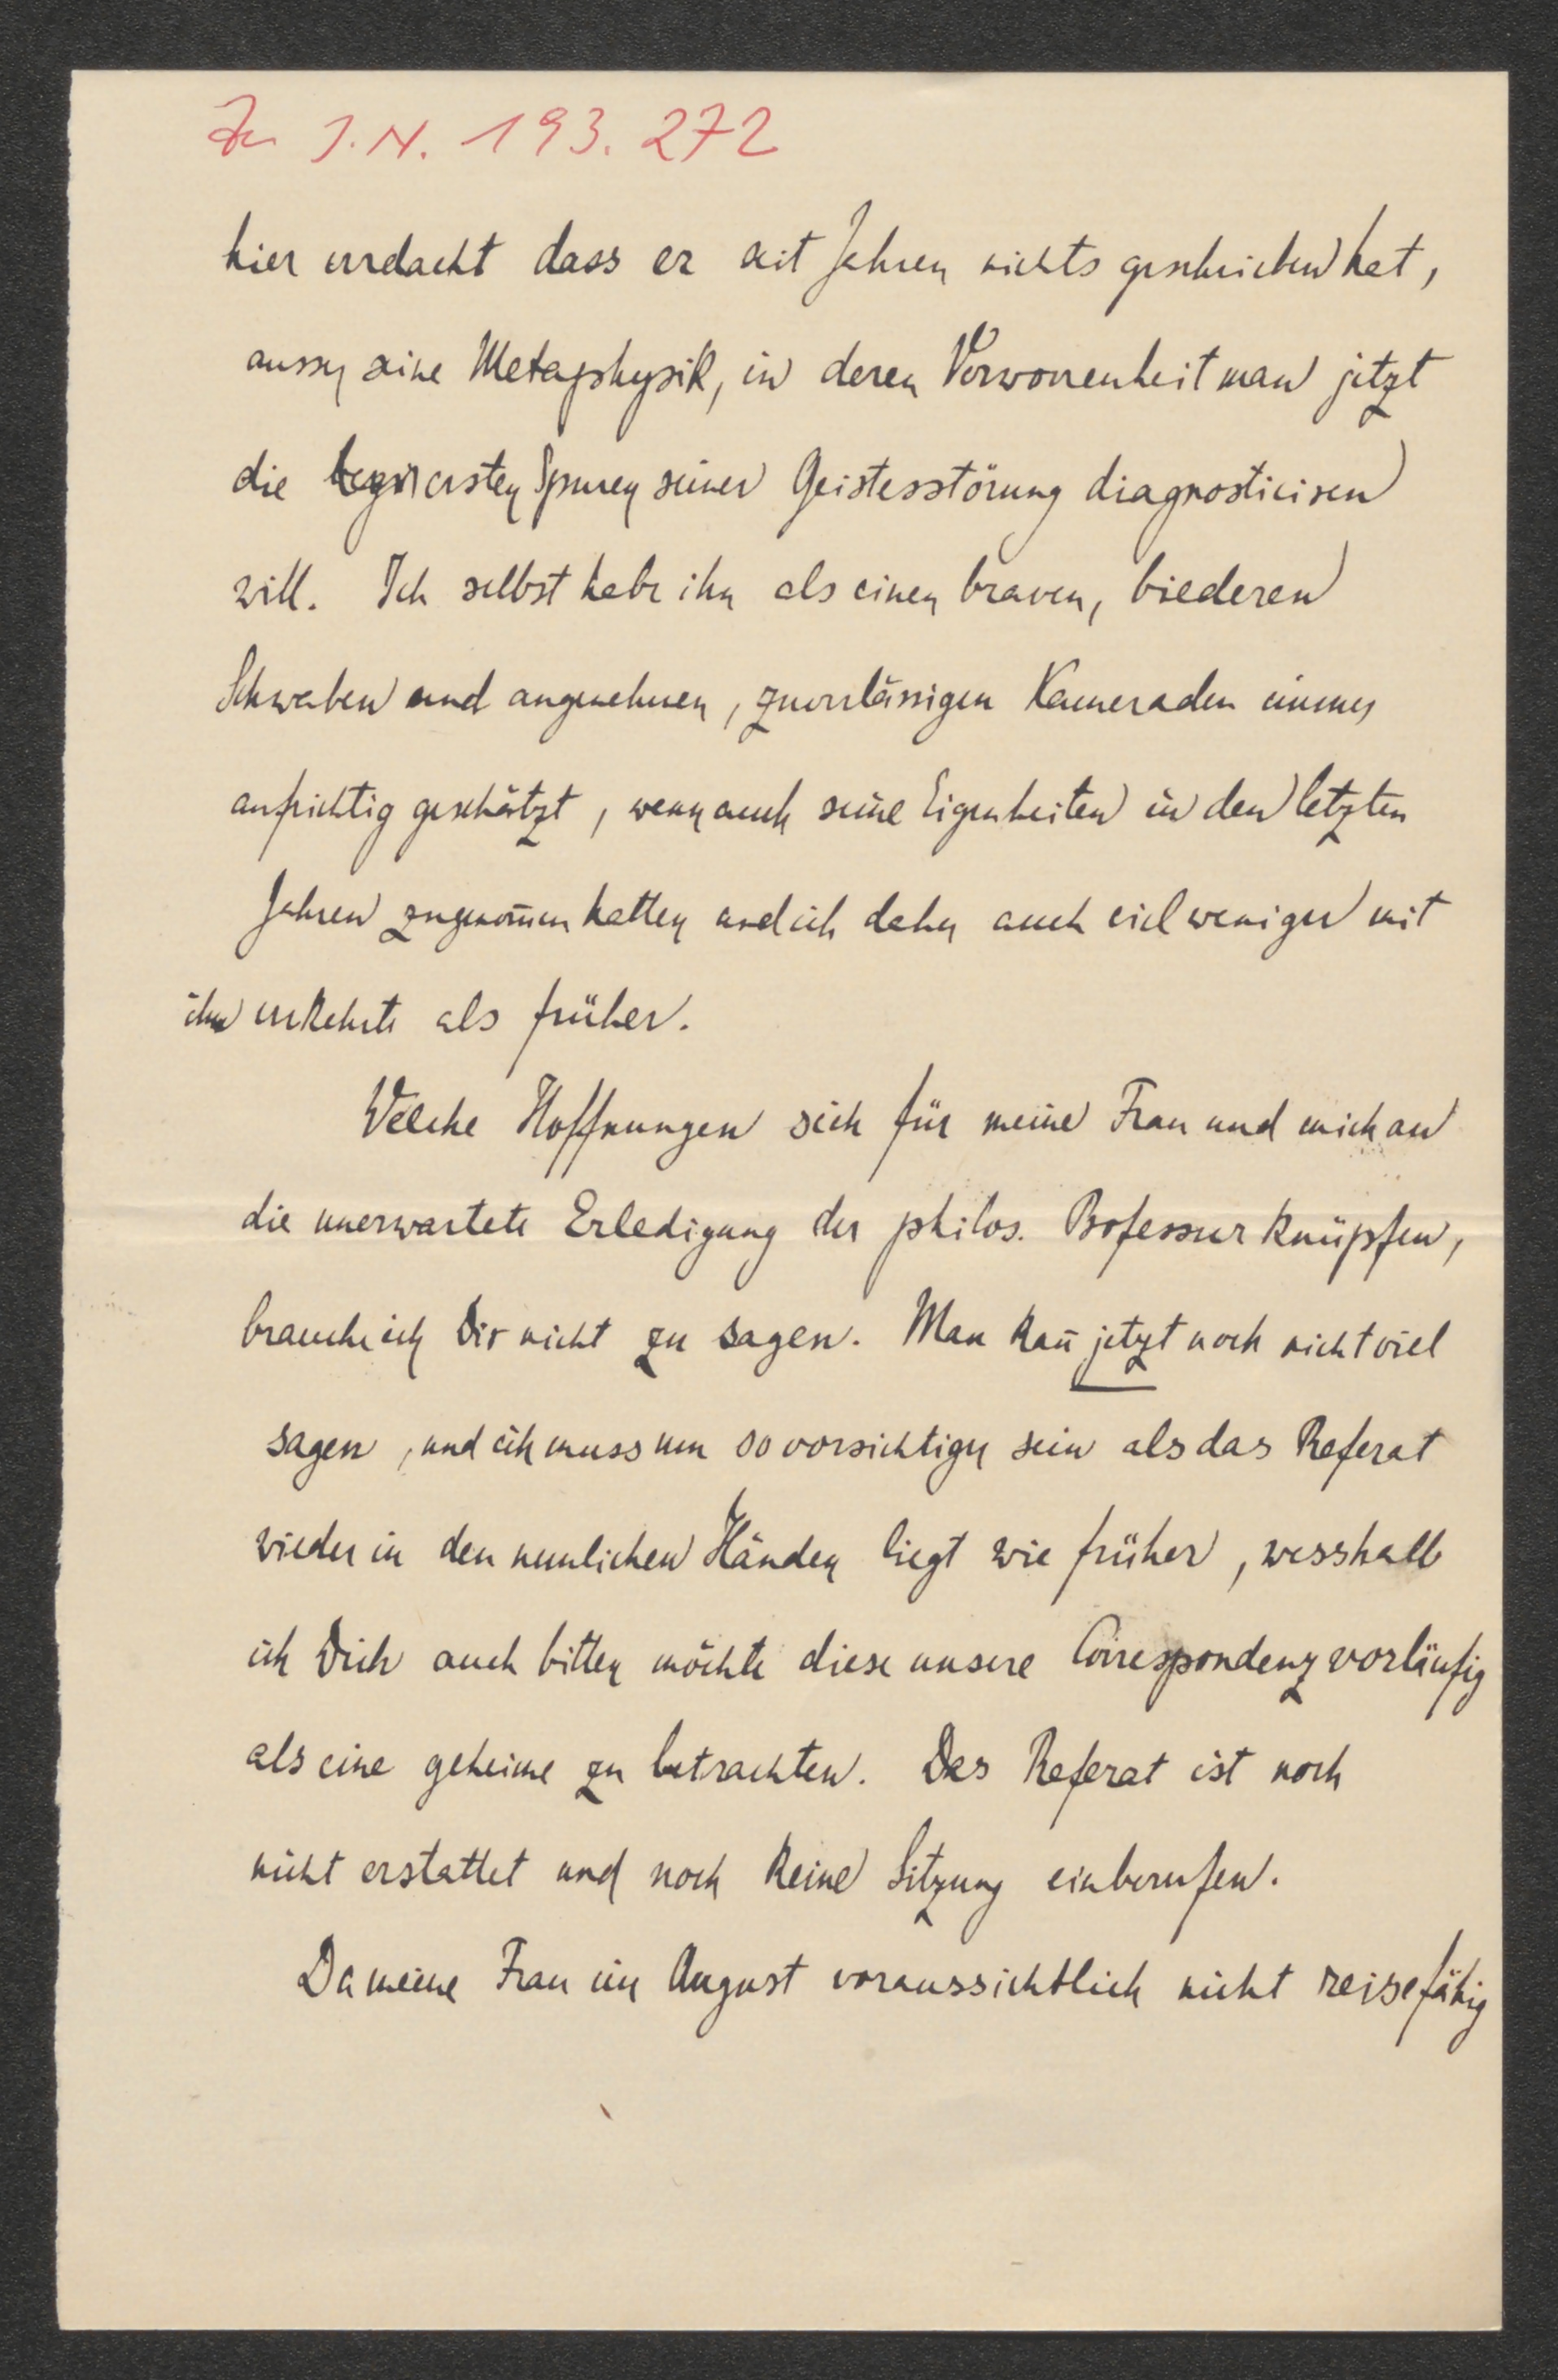 Zu I.N. 193.272
hier verdacht dass er seit Jahren nichts geschrieben hat,
ausser seine Metaphysik, in deren Verworrenheit man jetzt
die ersten Spuren seiner Geistesstörung diagnosticiren
will. Ich selbst habe ihn als einen braven, biederen
Schwaben und angenehmen, zuverlässigen Kameraden immer
aufrichtig geschätzt, wenn auch seine Eigenheiten in den letzten
Jahren zugenom̅en hatten und ich daher auch viel weniger mit
ihm verkehrte als früher.
Welche Hoffnungen sich für meine Frau und mich an
die unerwartete Erledigung der philos. Professur knüpfen,
brauche ich Dir nicht zu sagen. Man kan̅ jetzt noch nicht viel
sagen, und ich muss um so vorsichtiger sein als das Referat
wieder in den nemlichen Händen liegt wie früher, wesshalb
ich Dich auch bitten möchte diese unsere Correspondenz vorläufig
als eine geheime zu betrachten. Das Referat ist noch
nicht erstattet und noch keine Sitzung einberufen.
Da meine Frau im August voraussichtlich nicht reisefähig